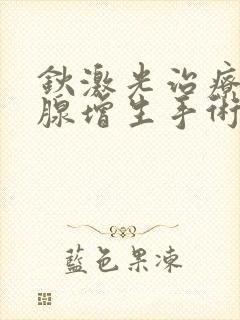 鈥激光治療
腺增生手術
藍色果凍